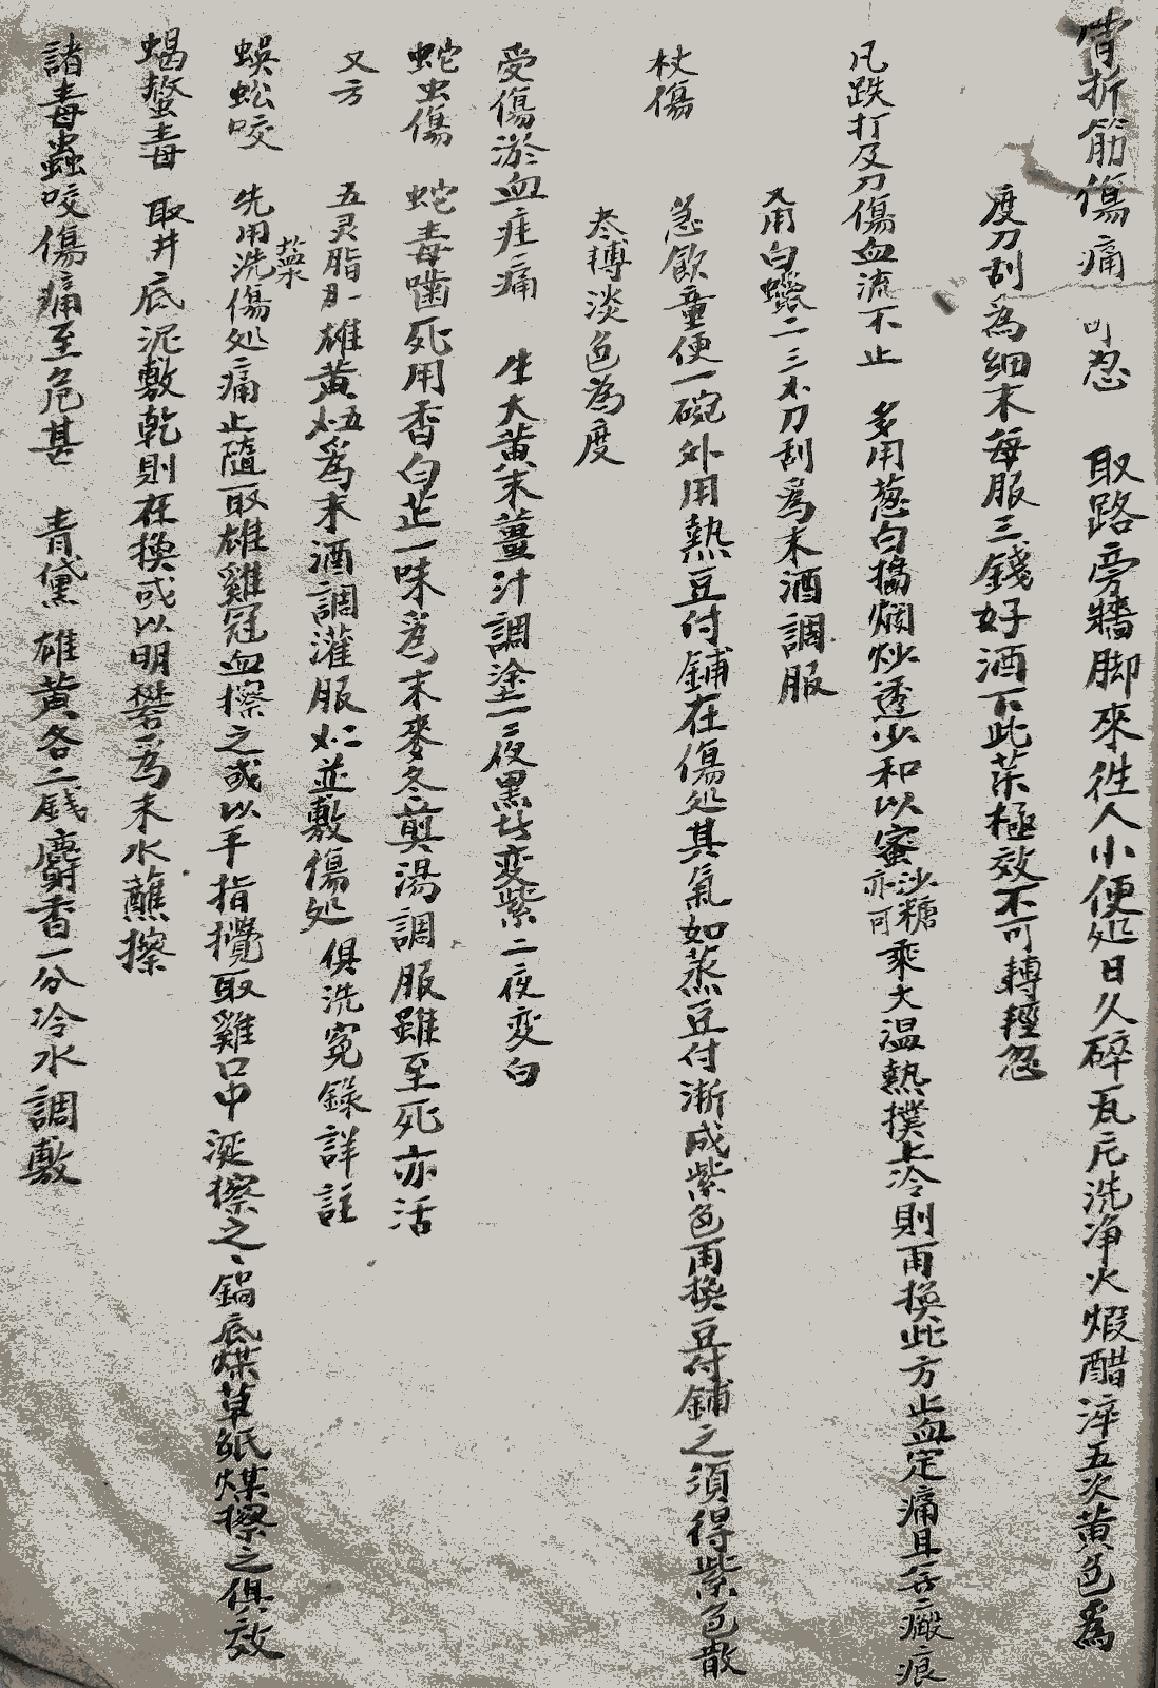 骨折筋傷痛 可忍 取路旁牆脚來徃人小便処日久碎瓦片洗净火煅醋淬五次黄色為
度刀刮為細末每服三錢好酒下此藥極效不可轉輕忽
凡跌打及刀傷血流不止 多用葱白搗爛炒透少和以蜜沙糖亦可乘大温熱撲上冷則再換此方止血定痛且無瘢痕
又用白蠟二三 刀刮爲末酒調服
杖傷 急飲童便一碗外用熱豆付鋪在傷処其氣如蒸豆付漸成紫色再換豆付鋪之須得紫色散
尽轉淡色為度
受傷淤血疰痛 生大黄末薑汁調塗一夜黑者变紫二夜变白
蛇虫傷 蛇毒嚙死用香白芷一味爲末麥冬煎湯調服雖至死亦活
又方 五灵脂 雄黄 五爲末酒調灌服 二並敷傷処 俱洗寃錄詳註
蜈蚣咬 先用藥水洗傷処痛止隨取雄雞冠血擦之或以手指攪取雞口中涎擦之、鍋底煤草紙煤擦之俱效
蝎螫毒 取井底泥敷乾則在換或以明礬為末水蘸擦
諸毒蟲咬傷痛至危甚 青黛 雄黄各二錢麝香一分冷水調敷